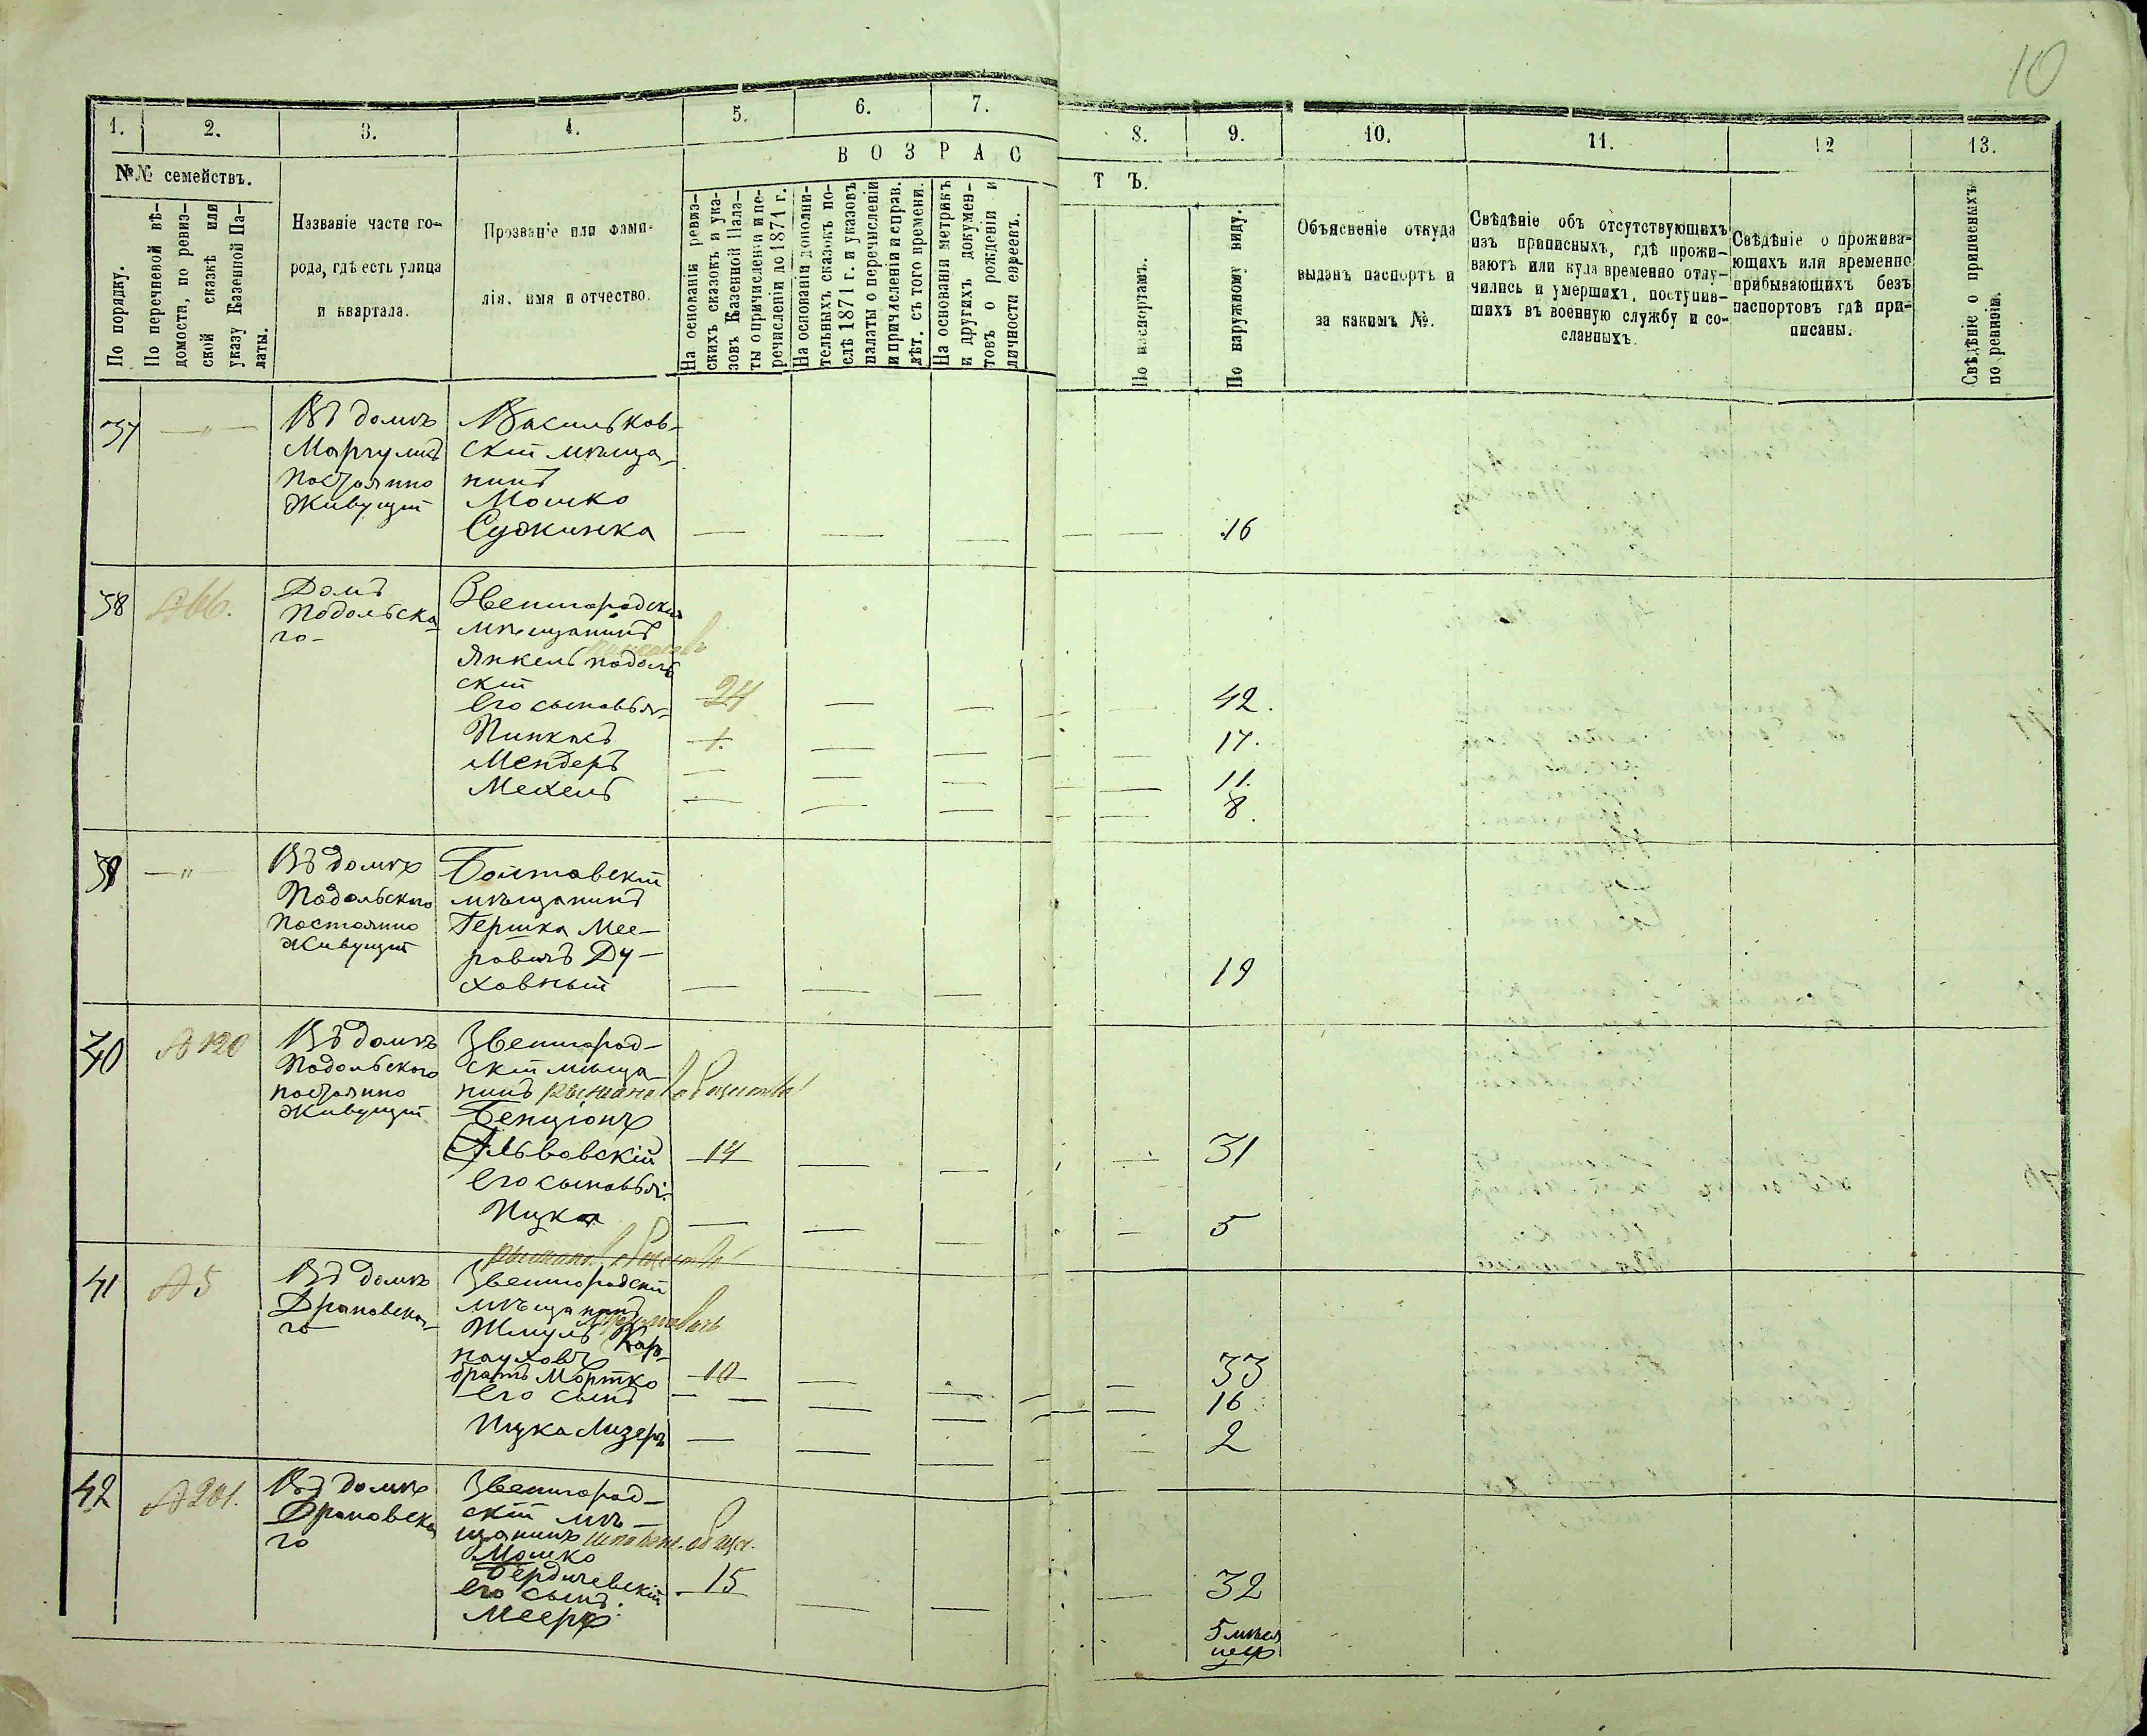 10
1. 2. 3. 4. 5. 6. 7. 8. 9. 10. 11. 12 13.
№№ семействъ.
ВОЗРАСТЪ.
По порядку.
По перечневой вѣ-
домости, по ревиз-
ской сказкѣ или
указу Казенной Па-
латы.
Названіе части го-
рода, гдѣ есть улица
и квартала.
Прозваніе или фами-
лія, имя и отчество.
На основаніи ревиз-
скихъ сказокъ и ука-
зовъ Казенной Пала-
ты о причисленіи и пе-
речисленіи по 1871 г.
На основаніи дополни-
тельныхъ сказокъ по-
слѣ 1871 г. и указовъ
палаты о перечисленіи
и причисленіи и справ.
лѣт. съ того времени.
На основаніи метрикъ
и другихъ докумен-
товъ о рожденіи и
личности евреевъ.
По паспортамъ.
По наружному виду.
Объясненіе откуда
выданъ паспортъ и
за какимъ №.
Свѣдѣніе объ отсутствующихъ
изъ приписныхъ, гдѣ прожи-
ваютъ или куда временно отлу-
чились и умершихъ, поступив-
шихъ въ военную службу и со-
сланныхъ.
Свѣдѣніе о прожива-
ющихъ или временно
прибывающихъ безъ
паспортовъ гдѣ при-
писаны.
Свѣдѣніе о приписныхъ
по ревизіи.
37 — " —
Въ домѣ
Маргулиса
постоянно
живущій
Васильков-
скій мѣща-
нинъ
Мошко
Сужинка — — — — — 16
38 №66.
Домъ
Подольска-
го
Звенигородскій
мѣщанинъ
Янкель Подоль
скій 24 — — — 42.
Его сыновья
Пинкасъ 1. — — — 17.
Мендеръ — — — — 11.
Мехель — — — — 8.
39 — " —
Въ домѣ
Подольского
постоянно
живущій
Болтавскій
мѣщанинъ
Гершка Мее-
ровичъ Ду-
ховный — — — 19
40 №120
Въ домѣ
Подольского
постоянно
живущій
Звенигород-
скій мѣща-
нинъ рыжано. общества
Бенціонъ
Львовскій 14 — — — 31
Его сыновья:
Ицко — — — — 5
41 №5
Въ домѣ
Драновска-
го
Звенигородскій
мѣщанинъ
Шмуль Кар-
науховъ 10 — — — 33
братъ Мортко — — — — 16
его сынъ
Ицка Лизеръ — — — — 2
42 №201.
Въ домѣ
Драновска
го
Звенигород-
скій мѣ-
щанинъ
Мошко
Бердичевскій 15 — — — 32
его сынъ:
Мееръ 5 мѣся
цевъ